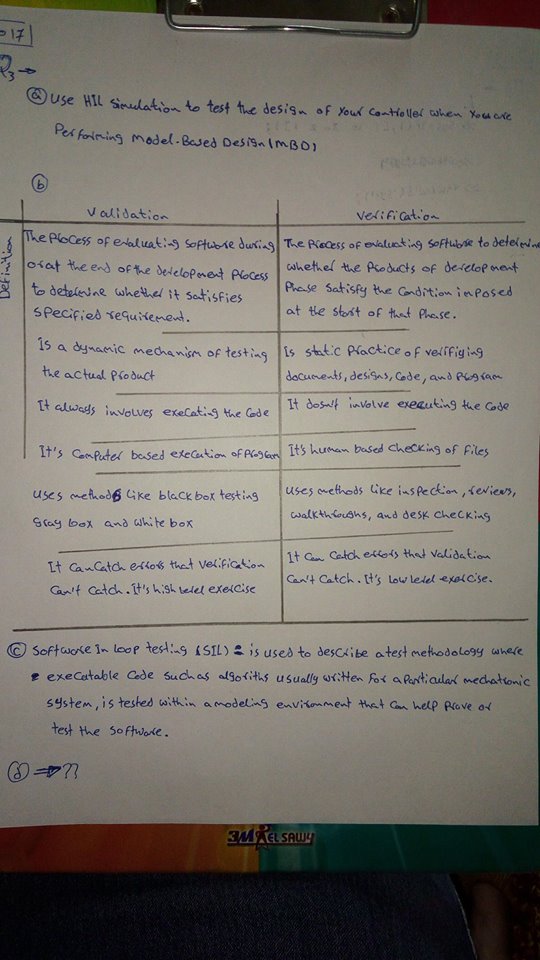 017
Q3 →
ⓐ Use HIL simulation to test the design of your controller when you are
Performing Model-Based Design (MBD)
ⓑ
Validation
Verification
Definition
The Process of evaluating software during
or at the end of the development Process
to determine whether it satisfies
specified requirement.
The Process of evaluating software to determine
whether the Products of development
Phase satisfy the Condition imposed
at the start of that Phase.
Is a dynamic mechanism of testing
the actual Product
Is static Practice of verifiying
documents, designs, code, and Program
It always involves execating the Code
It doesn't involve executing the Code
It's Computer based execution of Program
It's human based checking of files
uses methods like black box testing
gray box and white box
uses methods like inspection, reviews,
walkthroughs, and desk checking
It can catch errors that verification
Can't catch. It's high level exercise
It can catch errors that validation
Can't catch. It's low level exercise.
ⓒ Software In loop testing (SIL) = is used to describe a test methodology where
execatable Code such as algoriths usually written for a particular mechatronic
system, is tested within a modeling environment that can help prove or
test the software.
ⓓ ⇒ ??
3M EL SAWY